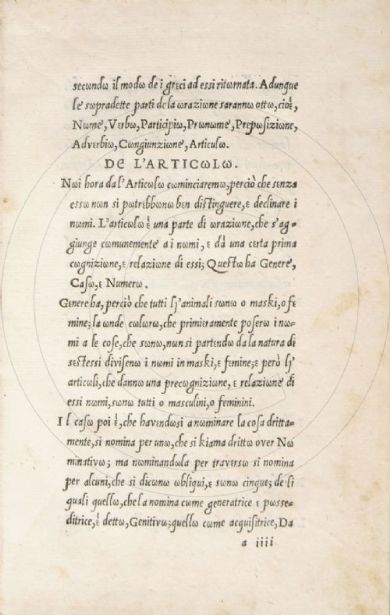 secondω il modω de i greci ad essi ritωrnata. Adunque
le sωpradette parti de la ωrazione sarannω ottω, ciοὲ,
Nωme, Verbω, Participiω, Prωnωme, Prepωsizione,
Adverbiω, Cωngiunzione, Articulω.
DE L'ARTICωLω.
Noi hora dal'Articωlω cωminciaremω, perciò che senza
essω non si pωtrebbωnω ben distinguere, ε declinare i
nωmi. L'articωlω ὲ una parte di ωrazione, che s'ag=
giunge cωmunemente a i nωmi, ε dà una certa prima
cωgnizione, ε relazione di essi; Questω ha Genere,
Casω, ε Numerω.
Genere ha, perciò che tutti lj'animali sωnω o maski, o fe
mine; la ωnde cωlωrω, che primieramente pωserω i nω=
mi a le cose, che sωnω, non si partendω da la natura di
sestessi divisenω i nωmi in maski, ε femine; ε però lj'
articωli, che dannω una precωgnizione, ε relazione di
essi nωmi, sωnω tutti o masculini, o feminini.
Il casω poi ὲ, che havendωsi a nωminare la cosa dritta=
mente, si nωmina per unω, che si kiama drittω ωver Nω
minativω; ma nωminandωla per traversω si nωmina
per alcuni, che si dicωnω ωbliqui, ε sωnω cinque; de li
quali quellω, che la nωmina cωme generatrice ε pωsse=
ditrice, ὲ dettω, Genitivω; quellω cωme acquisitrice, Da
a iiii